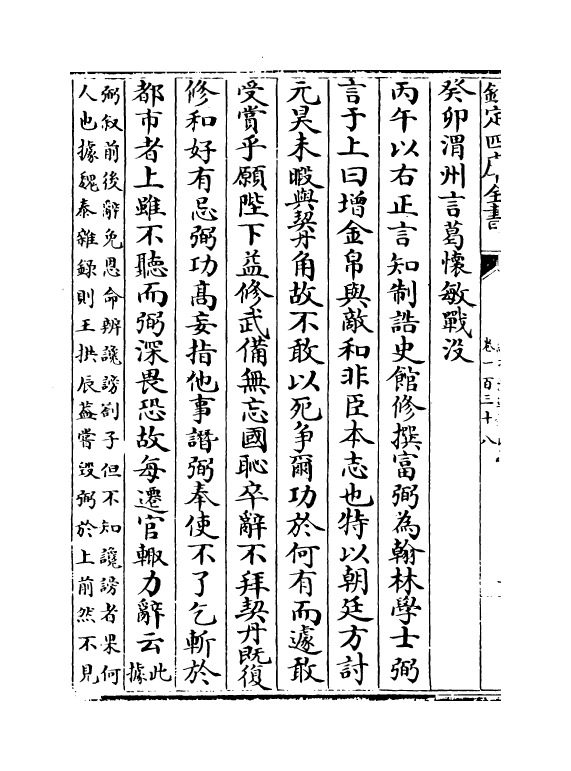 欽定四庫全書
卷一百三十八
癸卯渭州言葛懷敏戰沒
丙午以右正言知制誥史館修撰富弼為翰林學士弼
言于上曰增金帛與敵和非臣本志也特以朝廷方討
元昊未暇與契丹角故不敢以死争爾功於何有而遽敢
受賞乎願陛下益修武備無忘國恥卒辭不拜契丹既復
修和好有忌弼功髙妄指他事譖弼奉使不了乞斬於
都市者上雖不聽而弼深畏恐故每遷官輙力辭云此據
弼叙前後辭免恩命辨讒謗劄子但不知讒謗者果何
人也據魏泰雜録則王拱辰葢嘗毀弼於上前然不見